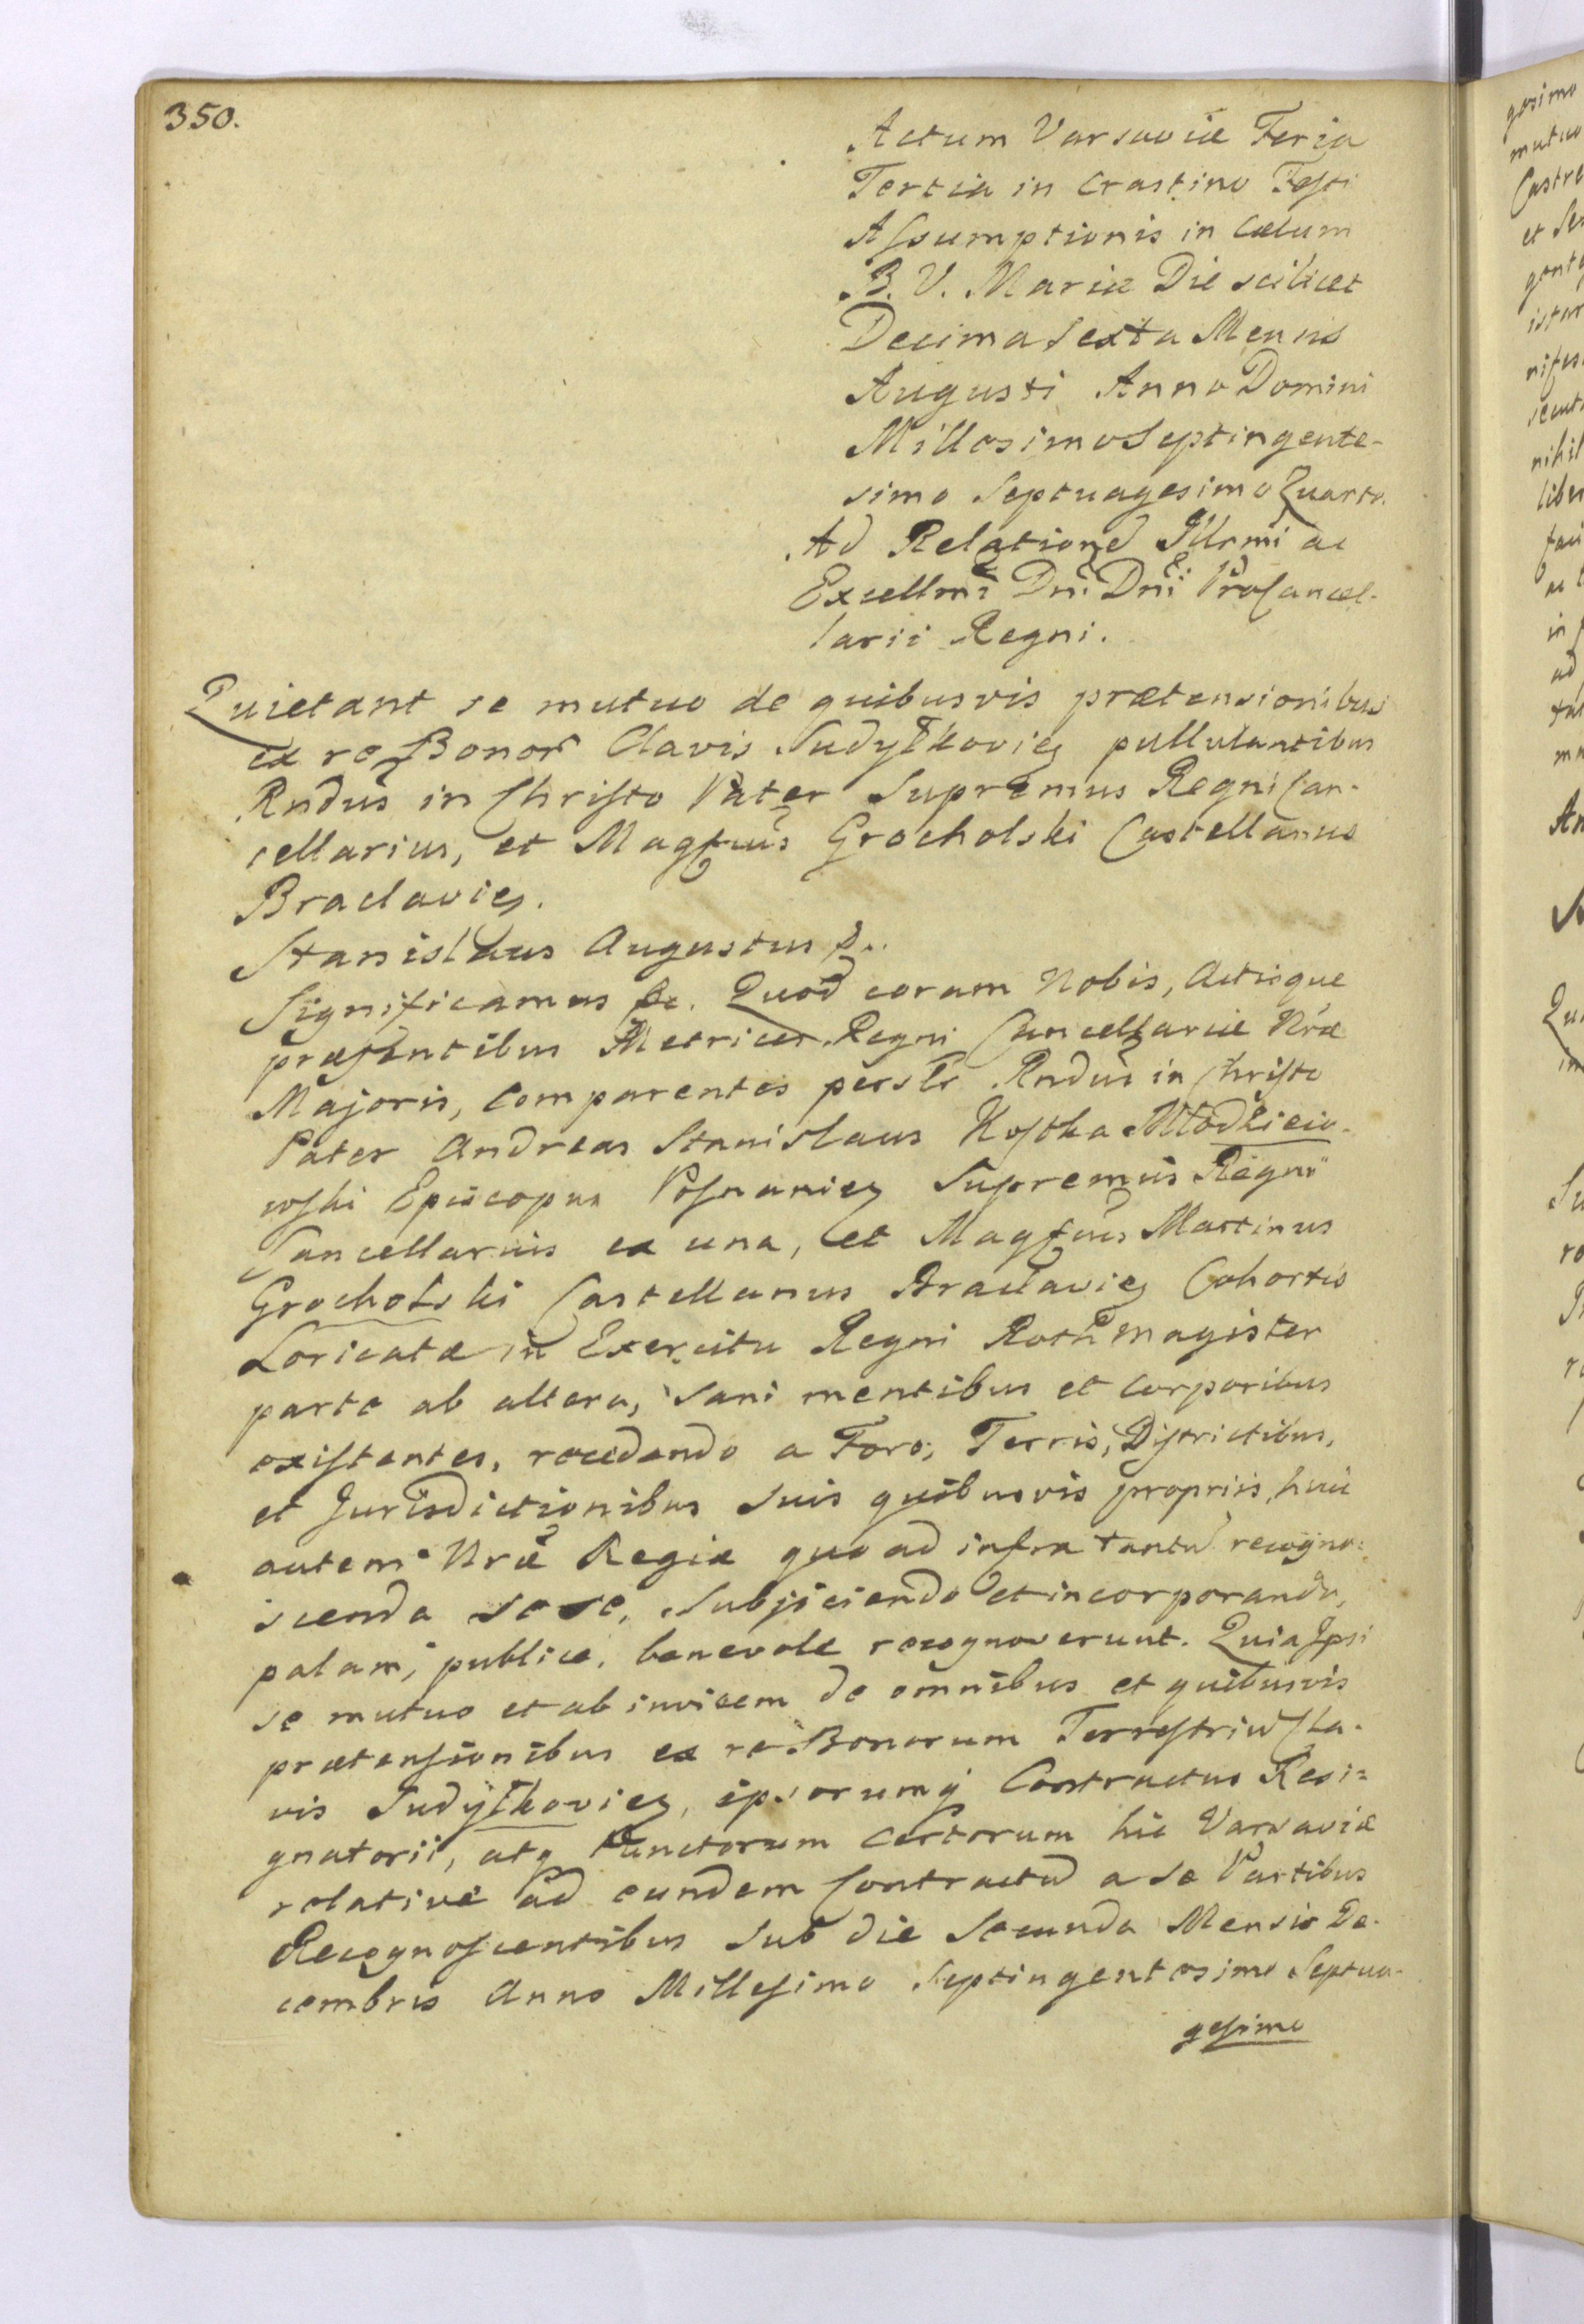 350.
Actum Varsaviæ Feria
Tertia in Crastino Festi
Assumptionis in Cælum
B. V. Mariæ Die scilicet
Decima Sexta Mensis
Augusti Anno Domini
Millesimo Septingente-
simo Septuagesimo Quarto.
Ad Relatione͂ Illrmi ac
Excellmi Dni Dni ProCancel-
larii Regni.
Quietant se mutuo de quibusvis prætensionibus
ex re Bonor Clavis Sudyłkovien pullulantibus
Rndus in Christo Pater Supremus Regni Can-
cellarius, et Magfcus Grocholski Castellanus
Braclavien.
Stanislaus Augustus &.
Significamus &c. Quod coram Nobis, Actisque
præsentibus Metrices Regni Cancellariæ Nræ
Majoris, comparentes perslr Rndus in Christo
Pater Andreas Stanislaus Kostka Młodzieio-
wski Episcopus Posnanien Supremus Regni
Cancellarius ex una, et Magfcus Martinus
Grocholski Castellanus Braclavien Cohortis
Loricatæ in Exercitu Regni Rothmagister
parte ab altera, sani mentibus et corporibus
existentes, recedendo a Foro, Terris, Districtibus,
et Jurisdictionibus suis quibusvis propriis, huic
autem Nræ Regiæ quo ad infra tantu͂ recogno-
scenda sese, subjiciendo et incorporando,
palam, publice, benevole recognoverunt. Quia Ipsi
se mutuo et ab invicem de omnibus et quibusvis
prætensionibus ex re Bonorum Terrestriu͂ Cla-
vis Sudyłkovien, ipsorumq Contractus Resi-
gnatorii, atq Punctorum certorum hic Varsaviæ
relative ad eundem Contractu͂ a se Partibus
Recognoscentibus sub die Secunda Mensis De-
cembris Anno Millesimo Septingentesimo Septua-
gesimo